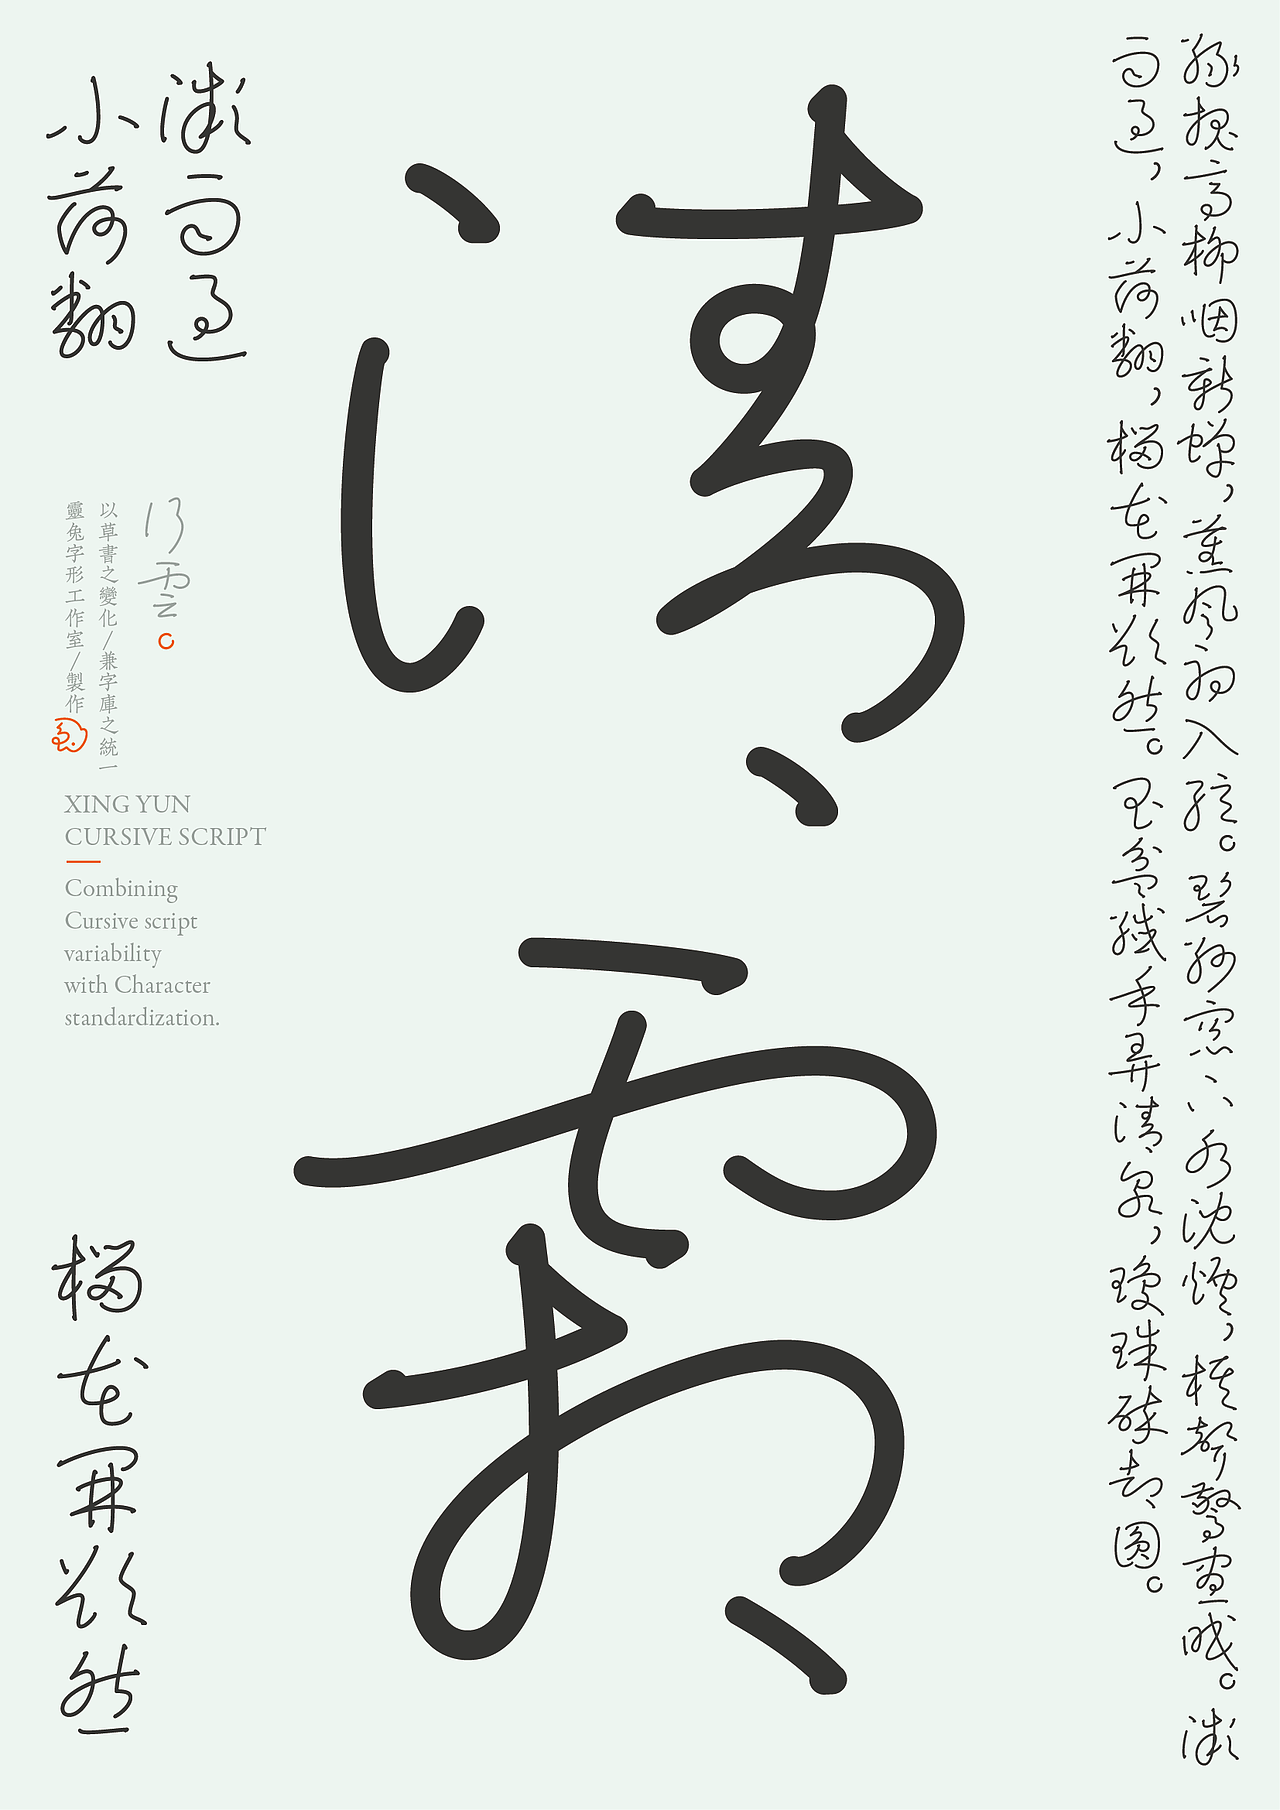 綠槐高柳咽新蟬，薰風初入弦。碧紗窗下水沈煙，棋聲驚晝眠。微
雨過，小荷翻，榴花開欲然。玉盆纖手弄清泉，瓊珠碎却圓。
清霜
微雨過
小荷翻
行雲。
以草書之變化/兼字庫之統一
靈兔字形工作室/製作
XING YUN
CURSIVE SCRIPT
Combining
Cursive script
variability
with Character
standardization.
榴花開欲然